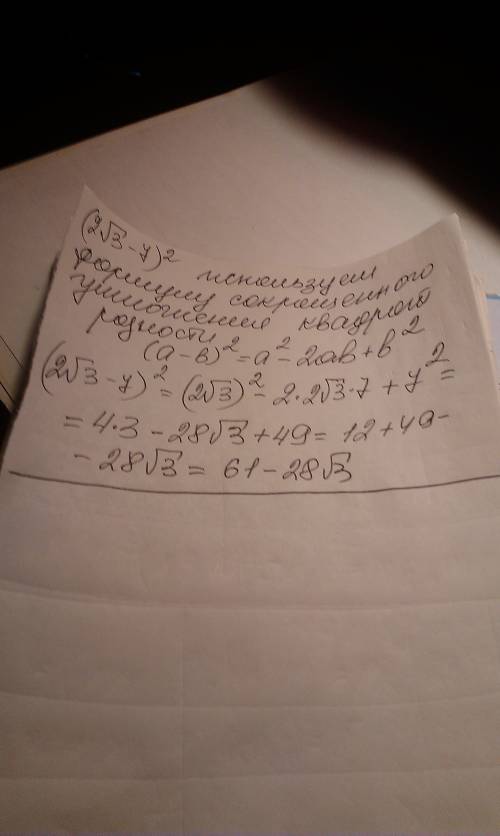 (2√3 - 7)²
используем
формулу сокращенного
умножения квадрат
разности
(a - b)² = a² - 2ab + b²
(2√3 - 7)² = (2√3)² - 2·2√3·7 + 7² =
= 4·3 - 28√3 + 49 = 12 + 49 -
- 28√3 = 61 - 28√3